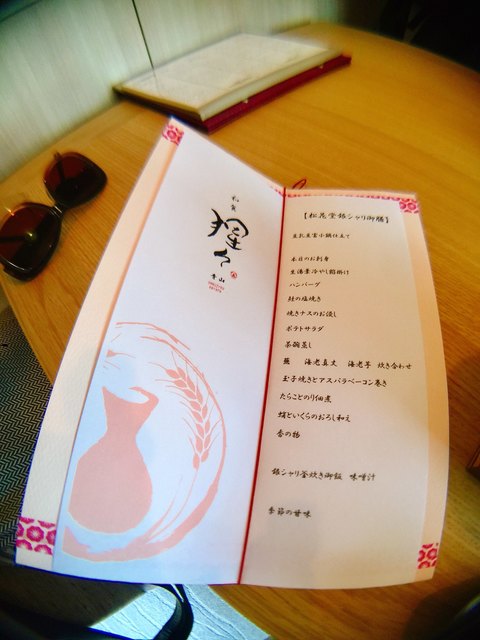 和食
猩々
青山
【松花堂銀シャリ御膳】
豆乳豆富小鍋仕立て
本日のお刺身
生湯葉冷やし餡掛け
ハンバーグ
鮭の塩焼き
焼きナスのお浸し
ポテトサラダ
茶碗蒸し
蕪 海老真丈 海老芋 炊き合わせ
玉子焼きとアスパラベーコン巻き
たらことのり佃煮
蛸といくらのおろし和え
香の物
銀シャリ釜炊き御飯 味噌汁
季節の甘味